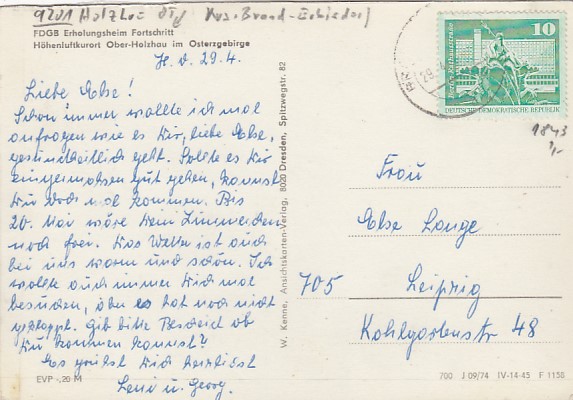 9201 Holzhau
FDGB Erholungsheim Fortschritt
Höhenluftkurort Ober-Holzhau im Osterzgebirge
H. d. 29.4.
Liebe Else!
Schon immer wollte ich mal
anfragen wie es Dir, liebe Else,
gesundheitlich geht. Sollte es Dir
einigermaßen gut gehen, kannst
Du doch mal kommen. Bis
20. Mai wäre Dein Zimmerchen
noch frei. Das Wetter ist auch
bei uns warm und schön. Ich
wollte auch immer Dich mal
besuchen, aber es hat noch nicht
geklappt. Gib bitte Bescheid ob
Du kommen kannst?
Es grüßt Dich herzlichst
Leni u. Georg.
EVP -,20 M
W. Kenne, Ansichtskarten-Verlag, 8020 Dresden, Spitzwegstr. 82
10
DEUTSCHE DEMOKRATISCHE REPUBLIK
1843
Frau
Else Lange
705 Leipzig
Kohlgartenstr 48
700 J 09/74 IV-14-45 F 1158